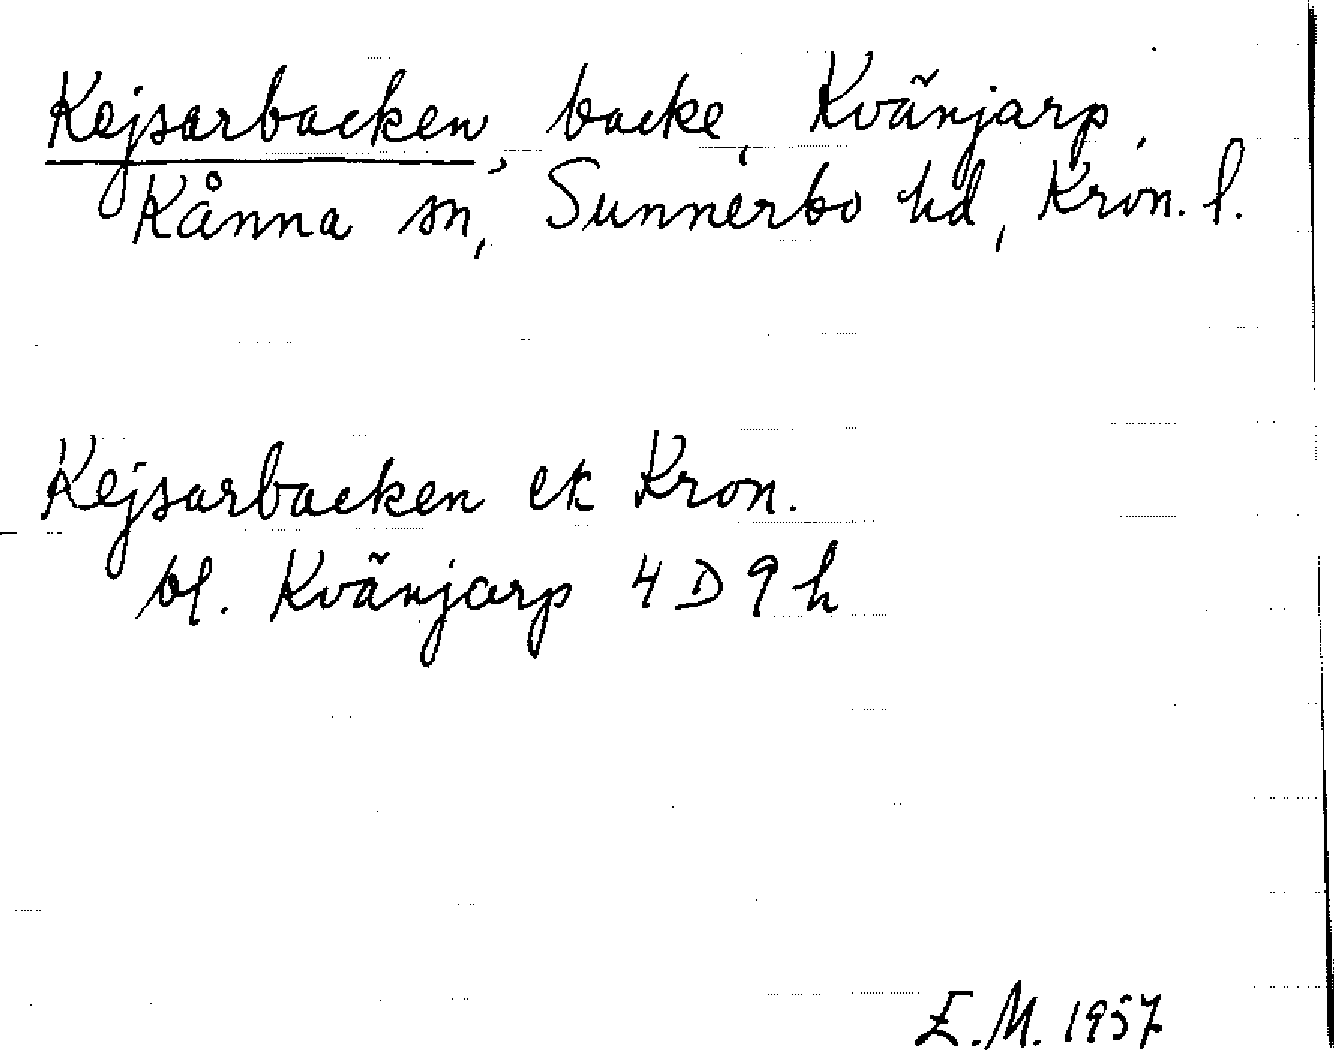 Kejsarbacken, backe, Kvänjarp,
Kånna sn, Sunnerbo hd, Kron. l.
Kejsarbacken ek Kron.
bl. Kvänjarp 4 D 9 h
E.M. 1957